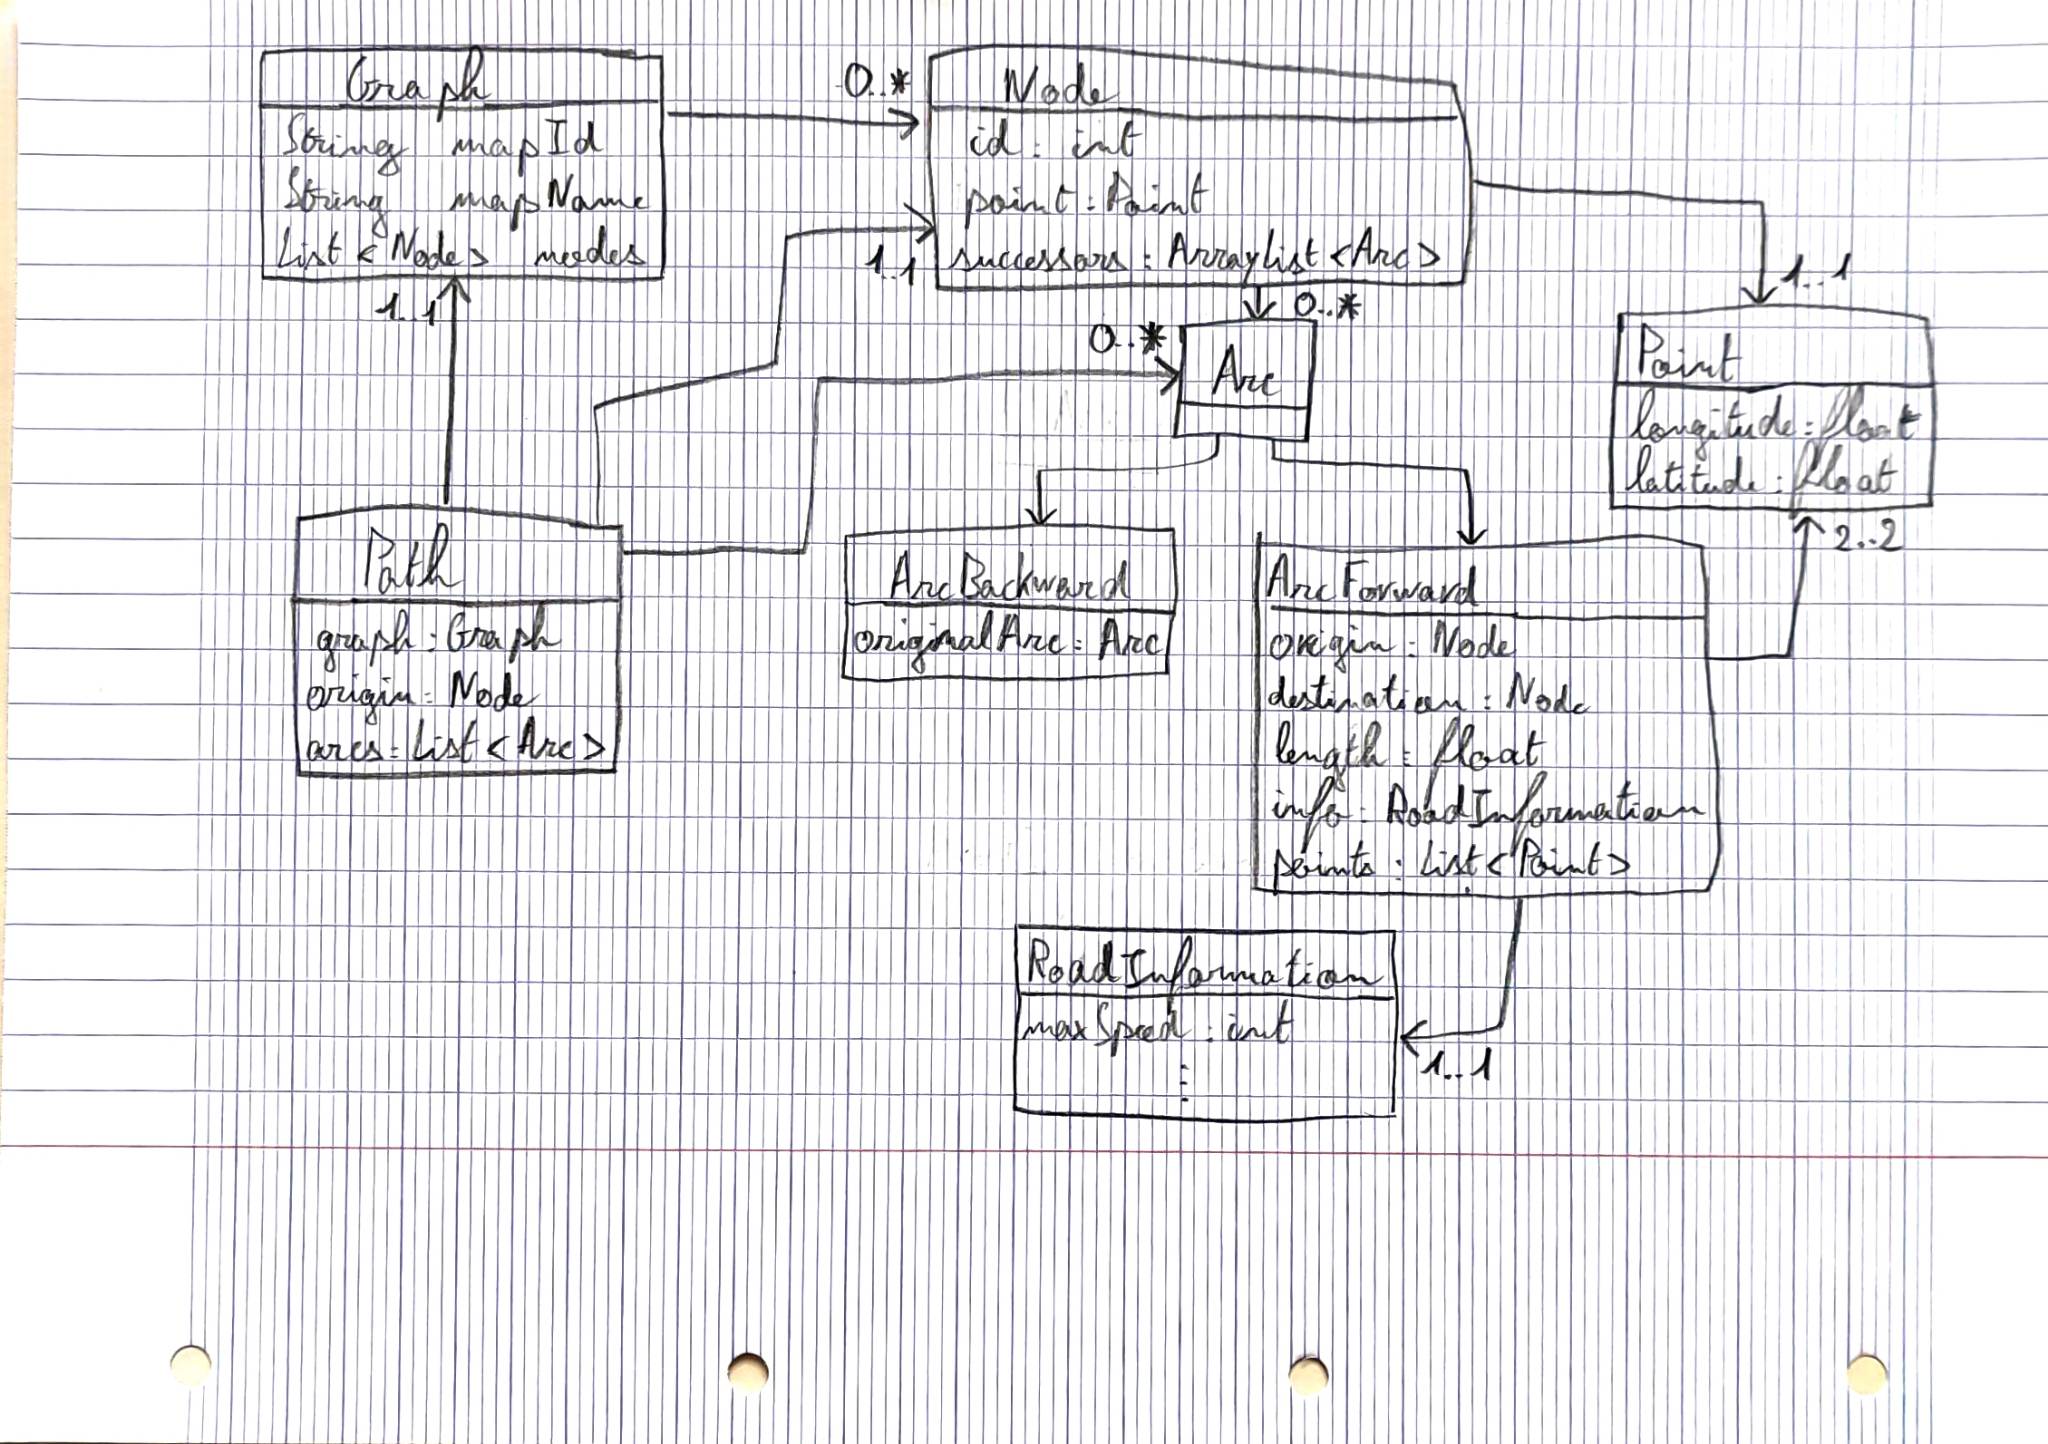 Graph
String mapId
String mapName
List <Node> nodes
0..*
Node
id : int
point : Point
successors : ArrayList <Arc>
1..1
1..1
0..*
0..*
Arc
1..1
Point
longitude : float
latitude : float
2..2
Path
graph : Graph
origin : Node
arcs : List <Arc>
ArcBackward
originalArc : Arc
ArcForward
origin : Node
destination : Node
length : float
info : RoadInformation
points : List <Point>
RoadInformation
maxSpeed : int
⋮
1..1